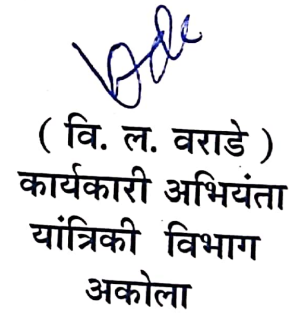 ( वि. ल. वराडे )
कार्यकारी अभियंता
यांत्रिकी विभाग
अकोला